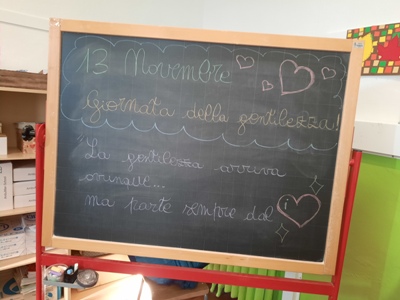 13 Novembre
Giornata della gentilezza!
"La gentilezza arriva
ovunque...
ma parte sempre dal
i